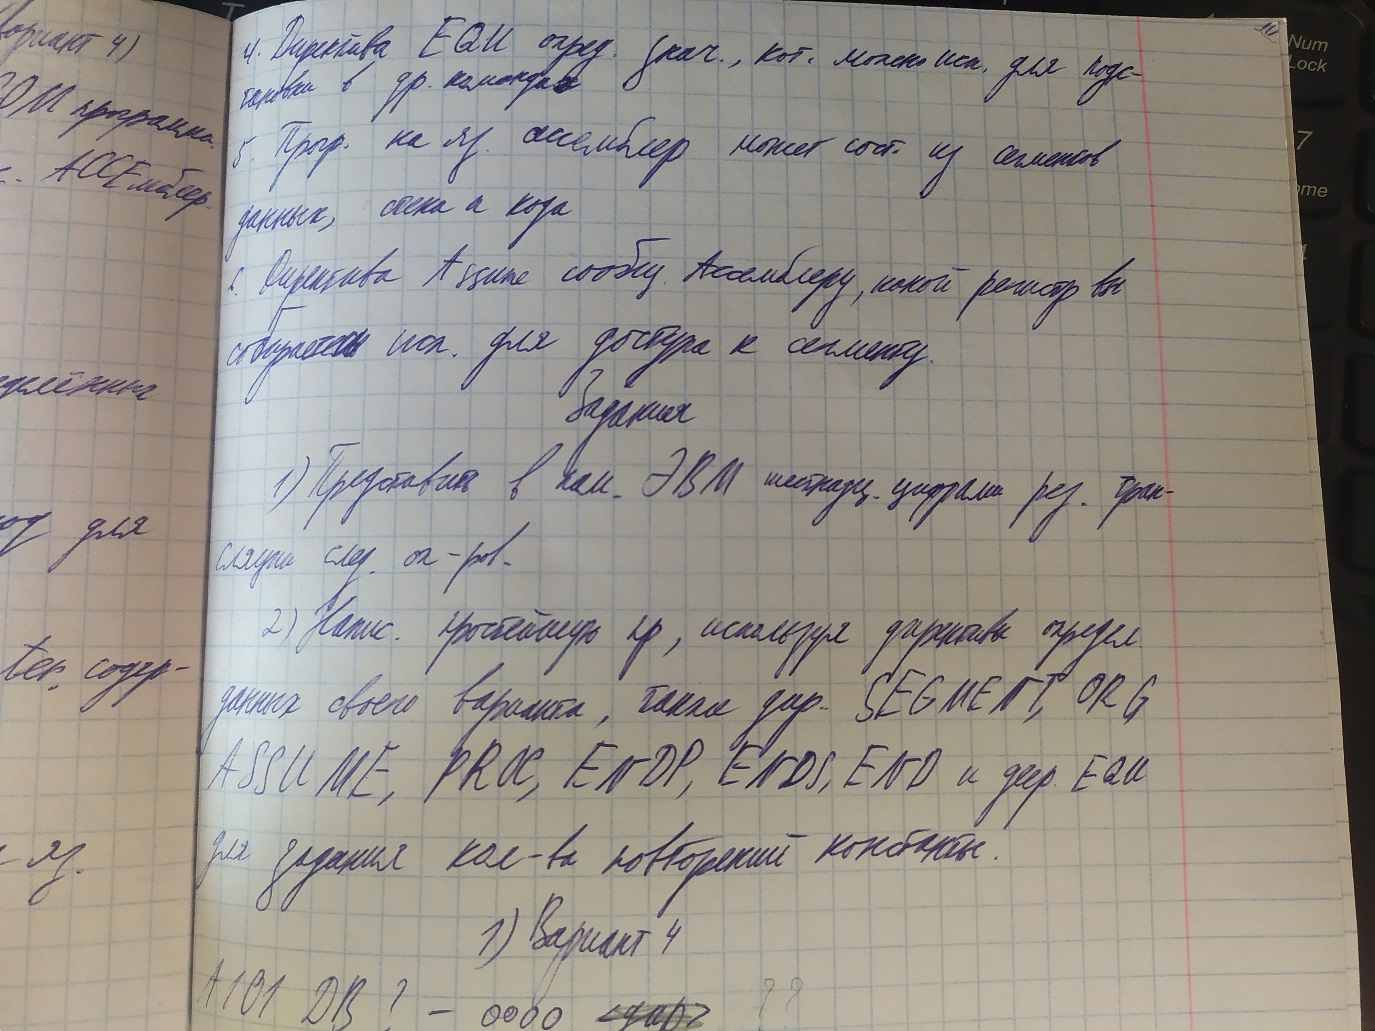 Вариант 4)
COM программа.
АССЕмблер.
од для
тек. содер-
яз.
4. Директива EQU опред. знач., кот. можно исп. для подс-
тановки в др. командах
5. Прогр. на яз. ассемблер может сост. из сегментов
данных, стека и кода
6. Директива Assume сообщ. Ассемблеру, какой регистр вы
собираетесь исп. для доступа к сегменту.
Задания
1) Представить в пам. ЭВМ шестнадц. цифрами рез. тран-
сляции след. оп-ров.
2) Напис. простейшую пр, используя директивы опредл.
данных своего варианта, также дир. SEGMENT, ORG
ASSUME, PROC, ENDP, ENDS, END и дир. EQU
для задания кол-ва повторений константы.
1) Вариант 4
A101 DB ? - 0000 ??
Num
Lock
7
ome